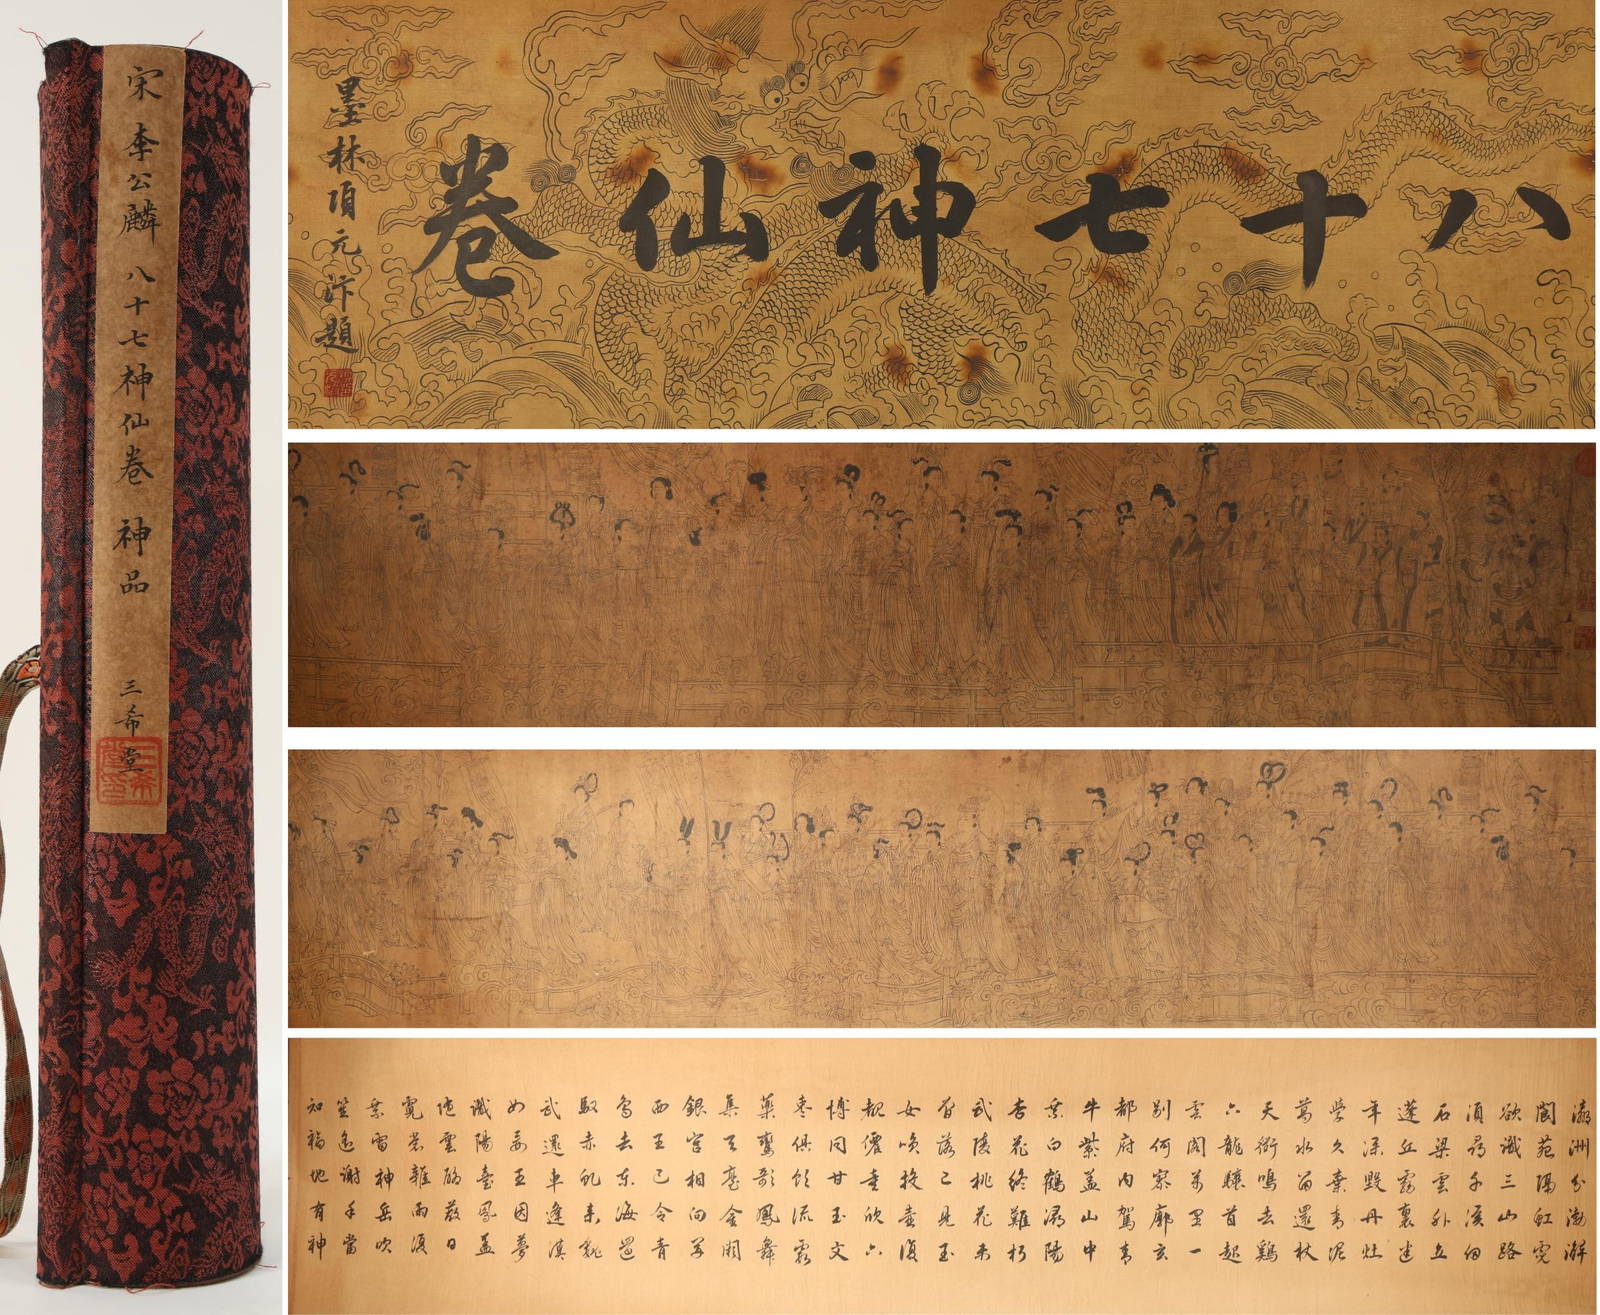 宋 李公麟 八十七神仙卷 神品 三希堂
八十七神仙卷
墨林項元汴題
瀛洲分渤澥
閬苑隔虹霓
欲識三山路
湏尋千溪
石梁雲外立
蓬丘霧裏迷
年深毀丹灶
學久棄青泥
葛水留還杖
天衢鳴去鷄
六龍驤首起
雲閣萬里一
別何寥廓玄
都府内駕青
牛紫蓋山中
乘白鶴潯陽
杏花終難朽
武陵桃花未
曾落已見玉
女咲投壺復
覩僊童欣六
博同甘玉文
棗俱飲流霞
藥鸞歌鳳舞
集天臺金闕
銀宮相向開
西王已令青
鳥去東海還
馭赤虬來魏
武還車逢漢
女荊王因夢
識陽臺鳳蓋
隨雲聊蔽日
霓裳雜雨復
乘雷神岳吹
笙遙謝手當
知福地有神